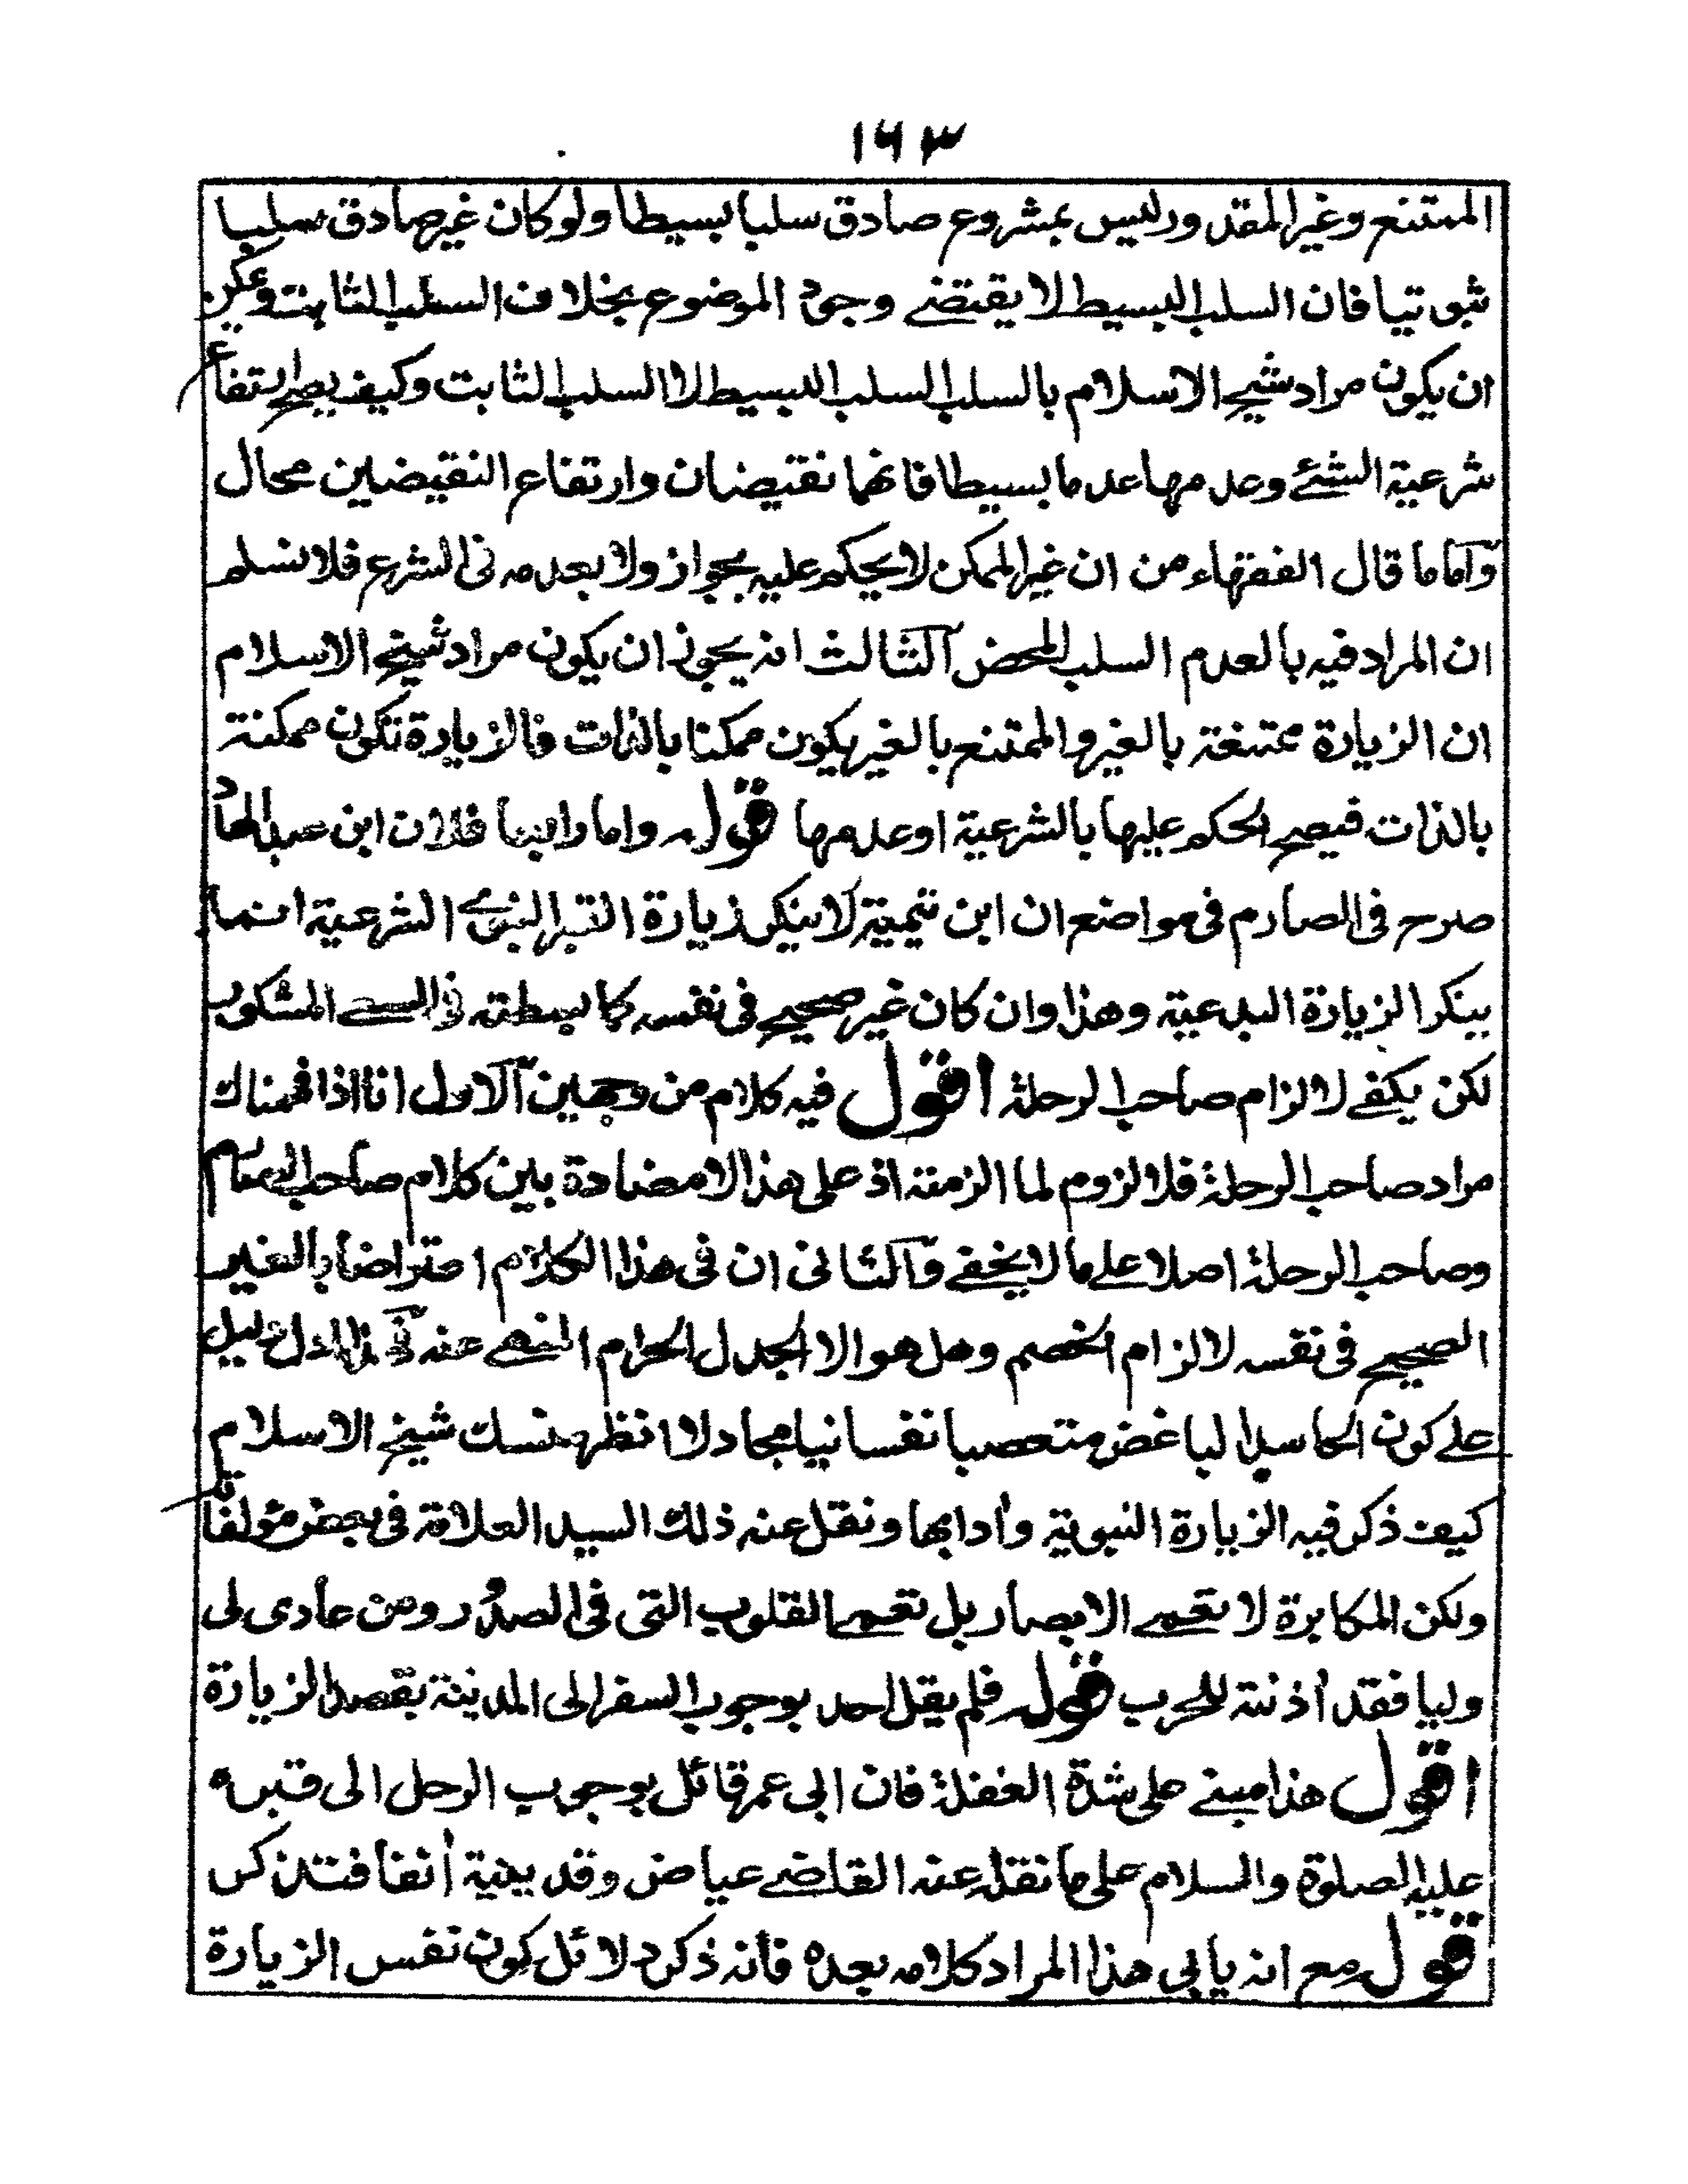 ١٦٣
الممتنع وغير المقدور ليس بمشروع صادق سلبا بسيطا ولو كان غير صادق سلبا
ثبوتيا فان السلب البسيط لا يقتضے وجود الموضوع بخلاف السلب الثابت ويمكن
ان يكون مراد شيخ الاسلام بالسلب السلب البسيط لا السلب الثابت وكيف يصح ارتفاع
شرعية الشئے وعدمها عدما بسيطا فانهما نقيضان وارتفاع النقيضين محال
وآما ما قال الفقهاء من ان غير الممكن لا يحكم عليه بجواز ولا بعدمه فى الشرع فلا نسلم
ان المراد فيه بالعدم السلب المحض آلثالث انه يجوز ان يكون مراد شيخ الاسلام
ان الزيارة ممتنعة بالغير والممتنع بالغير يكون ممكنا بالذات فالزيارة تكون ممكنة
بالذات فيصح الحكم عليها بالشرعية او عدمها قوله واما رابعا فلان ابن عبد الهاد
صرح فى الصارم فى مواضع ان ابن تيمية لا ينكر زيارة القبر النبوے الشرعية انما
ينكر الزيارة البدعية وهذا وان كان غير صحيح فى نفسه كما بسطته فى السعے المشكور
لكن يكفے لالزام صاحب الرحلة اقول فيه كلام من وجهين آلاول انا اذا فهمناك
مراد صاحب الرحلة فلا لزوم لما الزمته اذ على هذا لا مضادة بين كلام صاحب الصارم
وصاحب الرحلة اصلا علے ما لا يخفے وآلثانى ان فى هذا الكلام اعتراضا بالغير
الصحيح فى نفسه لالزام الخصم وهل هو الا الجدل الحرام المنهے عنه دليل
علے كون الحاسد الباغض متعصبا نفسانيا مجادلا انظر منسك شيخ الاسلام
كيف ذكر فيه الزيارة النبوية وادابها ونقل عنه ذلك السيد العلامة فى بعض مؤلفاته
ولكن المكابرة لا تعمے الابصار بل تعمے القلوب التى فى الصدور ومن عادى لى
وليا فقد أذنته للحرب قوله فلم يقل احد بوجوب السفر الى المدينة بقصد الزيارة
اقول هذا مبنے على شدة الغفلة فان ابى عمر قائل بوجوب الرحل الى قبره
عليه الصلوة والسلام على ما نقله عنه القاضے عياض وقد بينته أنفا فتذكر
قوله مع انه يابى هذا المراد كلامه بعده فانه ذكر دلائل كون نفس الزيارة